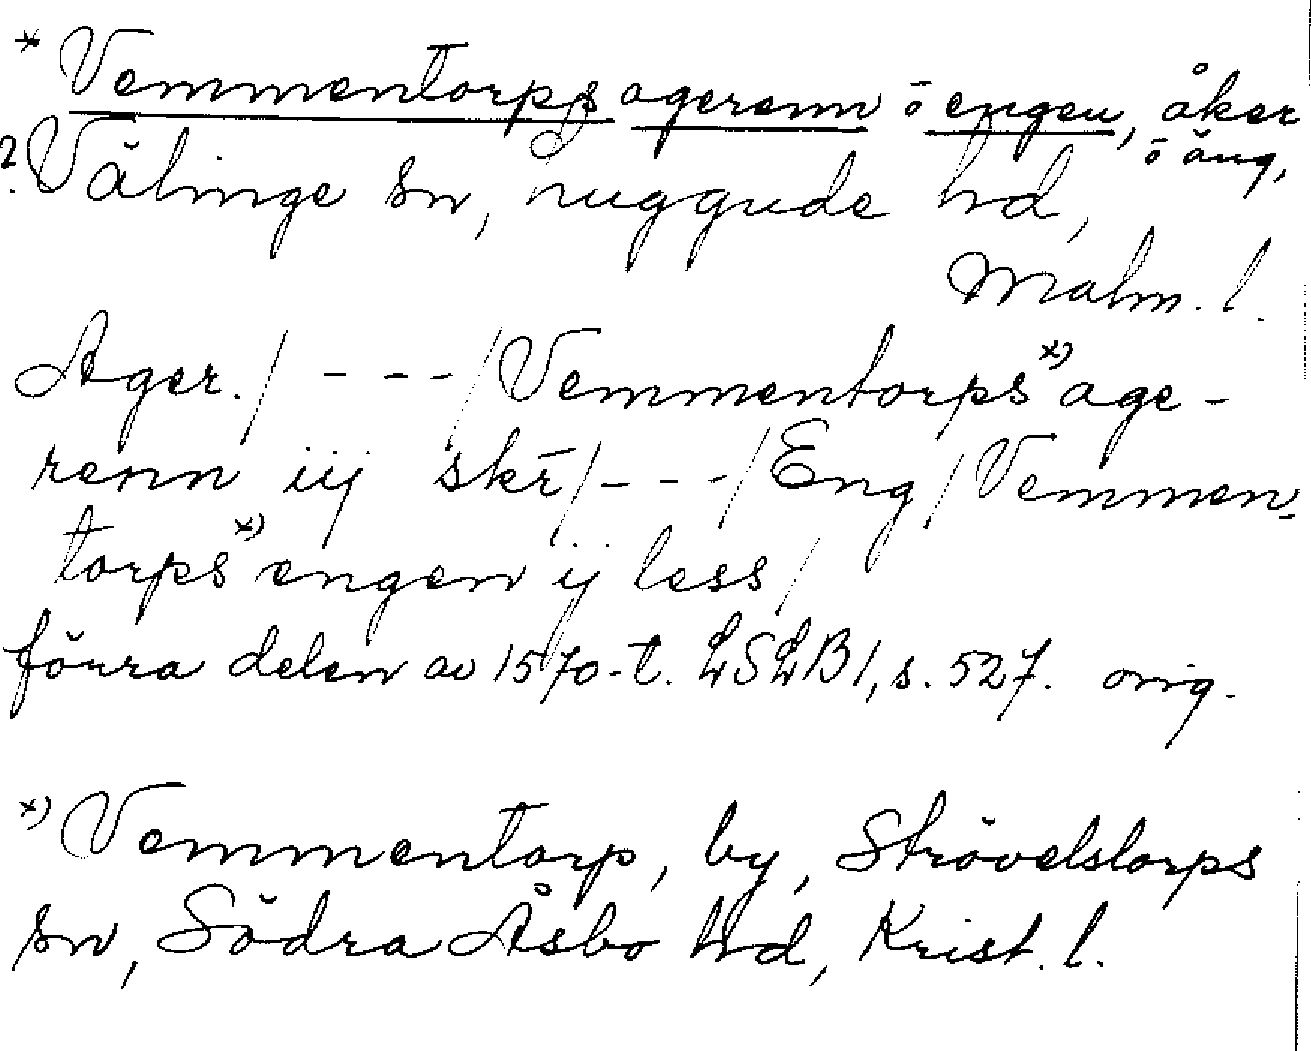 * Vemmentorps agerenn o engen, åker
o äng,
? Välinge sn, Luggude hd,
Malm. l.
Ager. / - - - / Vemmentorps x) age-
renn iij skr / - - - / Eng / Vemmen-
torps x) engen ij less /
förra delen av 1570-t. LSLB 1, s. 527. orig.
x) Vemmentorp, by, Strövelstorps
sn, Södra Åsbo hd, Krist. l.